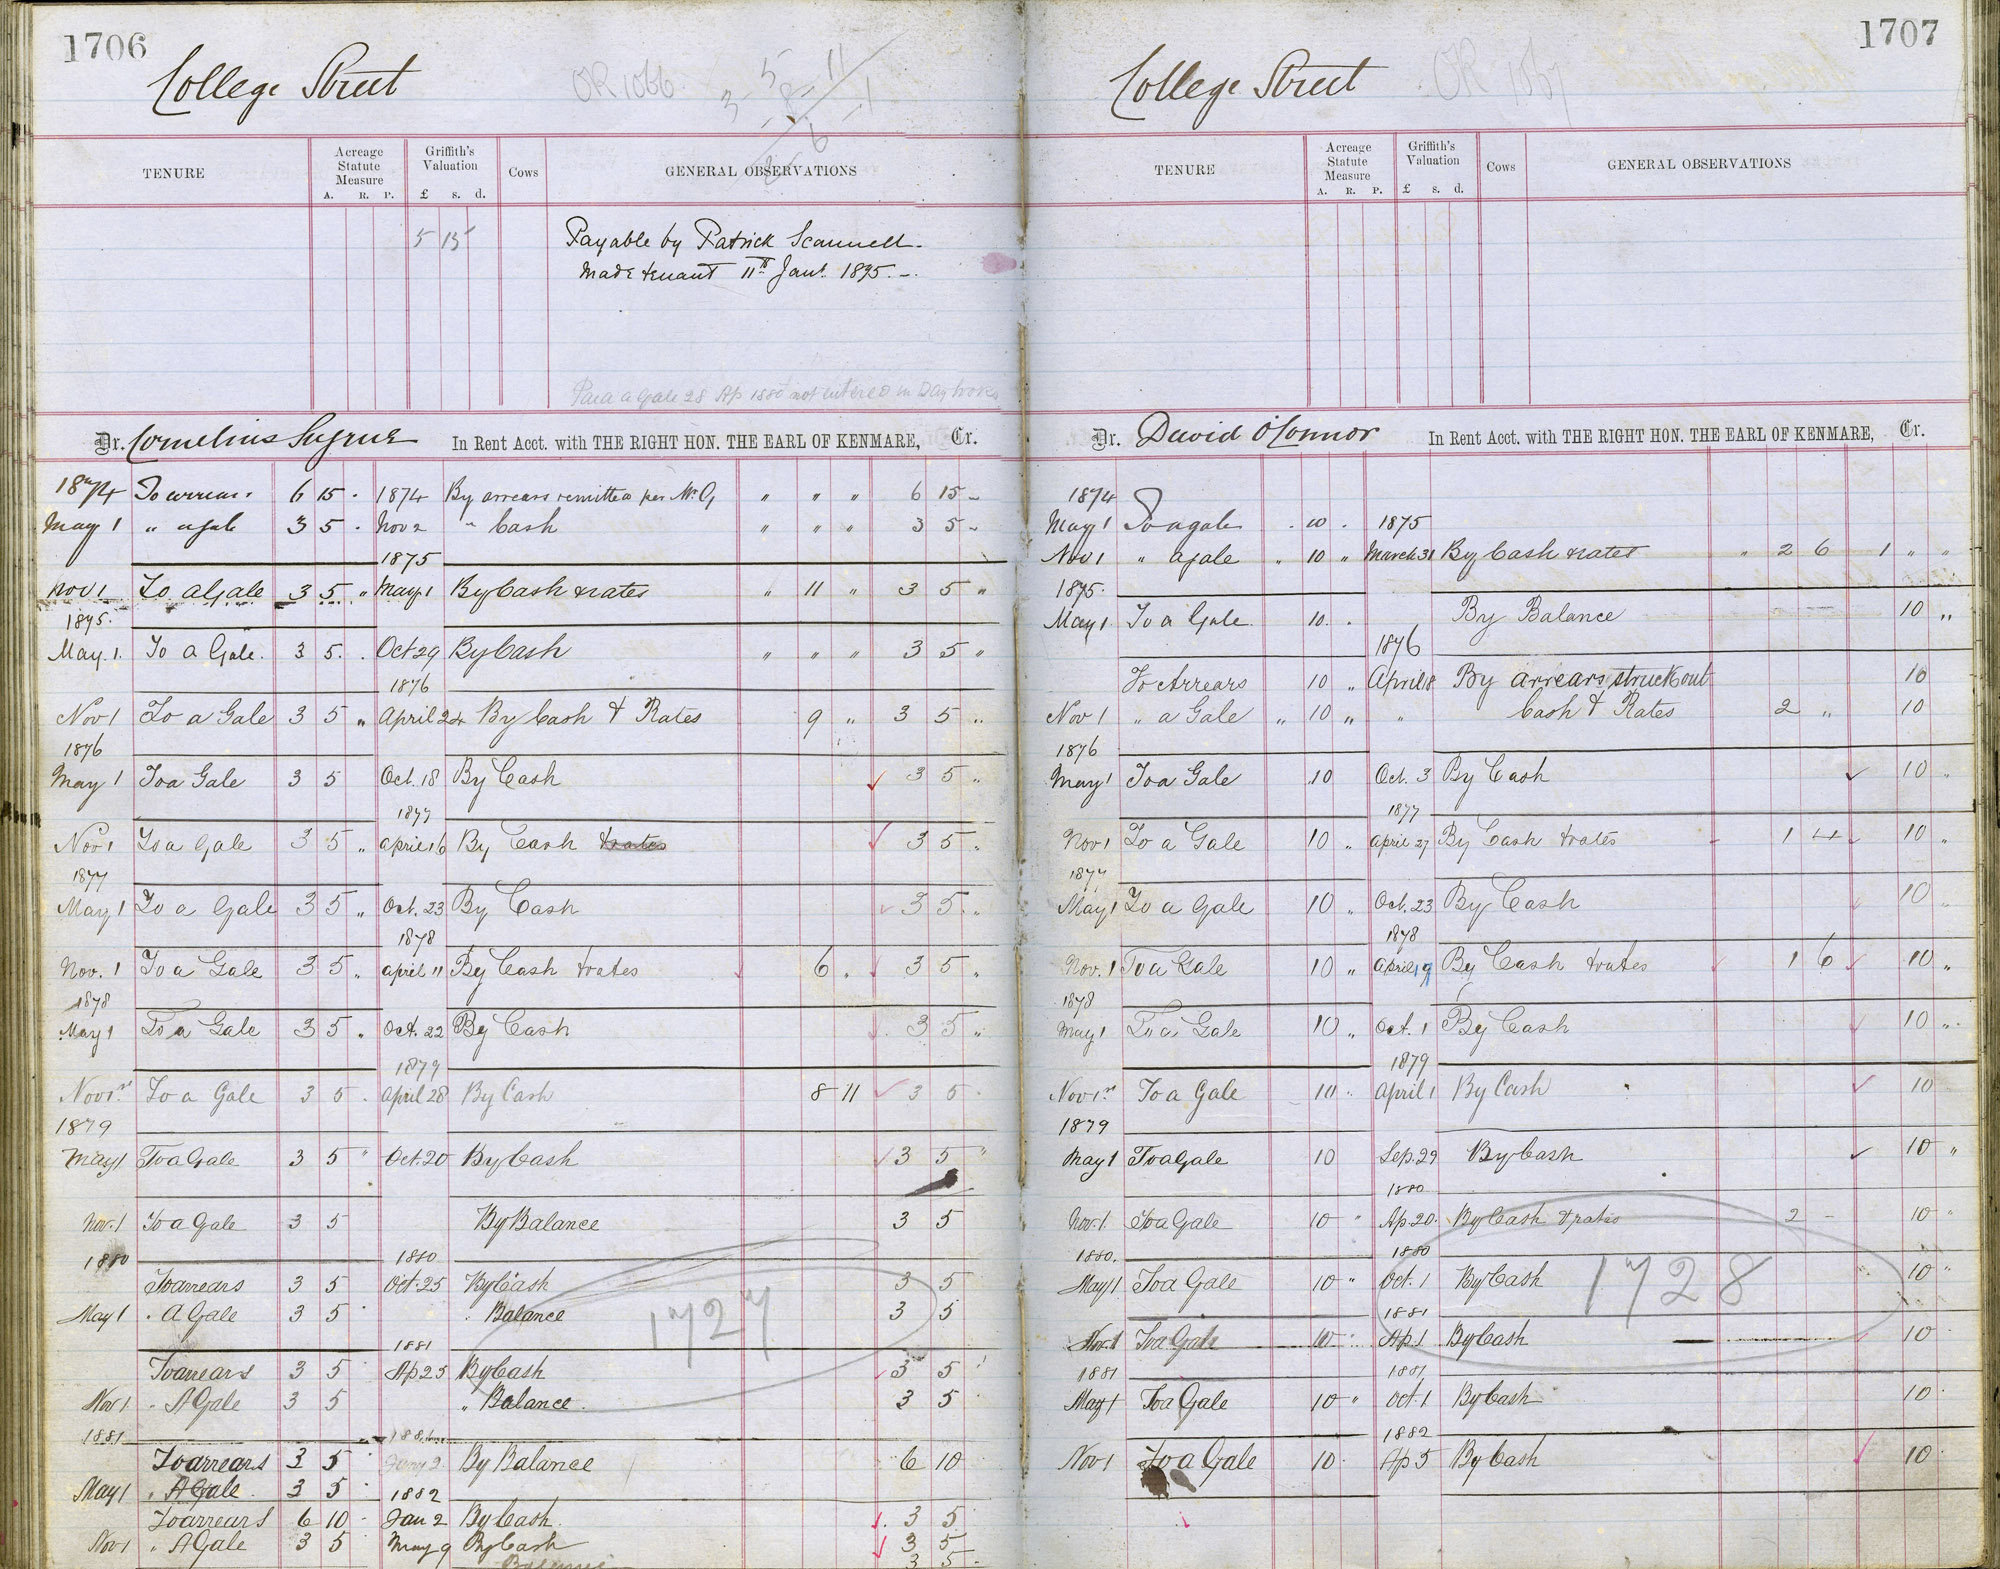 1706
College Street
OR 1066
TENURE
Acreage Statute Measure
A. R. P.
Griffith's Valuation
£ s. d.
Cows
GENERAL OBSERVATIONS
5 15
Payable by Patrick Scannell.
Made tenant 11th Jany. 1895.
Paid a Gale 28 Ap 1880 not entered in Day book
Dr. Cornelius In Rent Acct. with THE RIGHT HON. THE EARL OF KENMARE, Cr.
1874 To arrears 6 15 1874 By arrears remitted per Mr. G " " " 6 15 -
May 1 " a gale 3 5 . Nov 2 " Cash " " " 3 5 -
1875
Nov 1 To a Gale 3 5 " May 1 By Cash & rates " 11 " 3 5 "
1875.
May 1. To a Gale. 3 5. . Oct 29 By Cash " " " 3 5 "
1876
Nov 1 To a Gale 3 5 " April 24 By Cash & Rates 9 " 3 5 "
1876
May 1 To a Gale 3 5 Oct. 18 By Cash 3 5 "
1877
Nov 1 To a Gale 3 5 " April 16 By Cash & rates 3 5 "
1877
May 1 To a Gale 3 5 " Oct. 23 By Cash 3 5 "
1878
Nov. 1 To a Gale 3 5 " April 11 By Cash & rates 6 " 3 5 "
1878
May 1 To a Gale 3 5 " Oct. 22 By Cash 3 5 "
1879
Nov 1st To a Gale 3 5 . April 28 By Cash 8 11 3 5 .
1879
May 1 To a Gale 3 5 " Oct. 20 By Cash 3 5 "
Nov. 1 To a Gale 3 5 By Balance 3 5
1880 1880
To arrears 3 5 Oct. 25 By Cash 3 5
May 1 " A Gale 3 5 " Balance 3 5
1727
1881
To arrears 3 5 Ap 25 By Cash 3 5
Nov 1 " A Gale 3 5 " Balance 3 5
1881
To arrears 3 5 Jany 2 By Balance 6 10
May 1 " A Gale 3 5 1882
To arrears 6 10 Jan 2 By Cash 3 5
Nov 1 " A Gale 3 5 May 9 By Cash 3 5
Balance 3 5
1707
College Street
OR 1067
TENURE
Acreage Statute Measure
A. R. P.
Griffith's Valuation
£ s. d.
Cows
GENERAL OBSERVATIONS
Dr. David O'Connor In Rent Acct. with THE RIGHT HON. THE EARL OF KENMARE, Cr.
1874
May 1 To a gale . 10 . 1875
Nov 1 " a gale " 10 " March 31 By Cash & rates " 2 6 1 " "
1875.
May 1. To a Gale. 10. . By Balance 10 "
1876
To Arrears 10 " April 8 By arrears struck out 10
Nov 1 " a Gale " 10 " " Cash & Rates 2 " 10
1876
May 1 To a Gale 10 Oct. 3 By Cash 10 "
1877
Nov 1 To a Gale 10 " April 27 By Cash & rates 1 4 10 "
1877
May 1 To a Gale 10 " Oct. 23 By Cash 10 "
1878
Nov. 1 To a Gale 10 " April 19 By Cash & rates 1 6 10 "
1878
May 1 To a Gale 10 " Oct. 1 By Cash 10 "
1879
Nov 1st To a Gale 10 " April 1 By Cash 10
1879
May 1 To a Gale 10 Sep. 29 By Cash 10 "
1880
Nov. 1 To a Gale 10 " Ap 20. By Cash & rates 2 - 10 "
1880. 1880
May 1 To a Gale 10 " Oct. 1 By Cash 10 "
1728
1881
Nov. 1 To a Gale 10 " Ap 1 By Cash 10
1881 1881
May 1 To a Gale 10 " Oct. 1 By Cash 10
1882
Nov 1 To a Gale 10 . Ap 5 By Cash 10